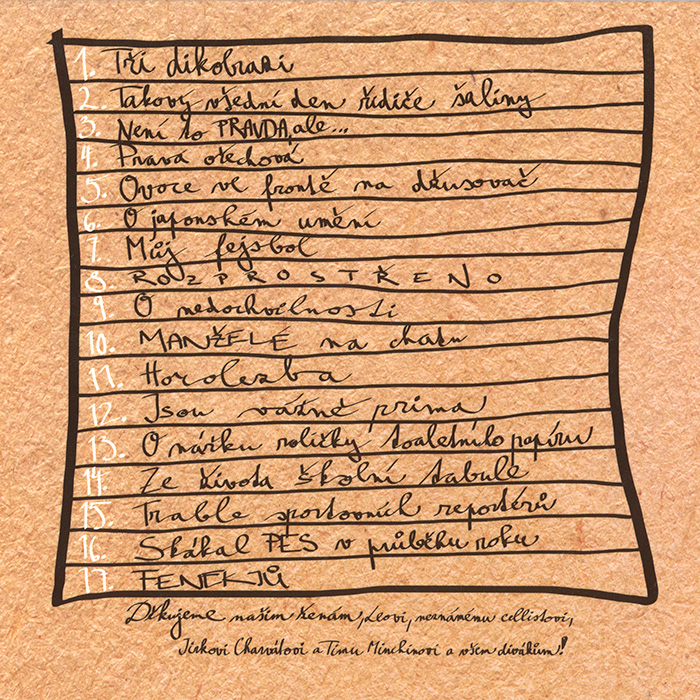 1. Tři dikobrazi
2. Takový všední den řidiče šaliny
3. Není to PRAVDA, ale...
4. Pravá ořechová
5. Ovoce ve frontě na džusovač
6. O japonském umění
7. Můj fejsbol
8. ROZPROSTŘENO
9. O nedochvilnosti
10. MANŽELÉ na chatu
11. Horolezba
12. Jsou vážně prima
13. O nářku roličky toaletního papíru
14. Ze života školní tabule
15. Trable sportovních reportérů
16. Skákal PES v průběhu roku
17. FENEKJŮ
Děkujeme našim ženám, Leovi, neznámému cellistovi,
Jirkovi Charvátovi a Timu Minchinovi a všem divákům!